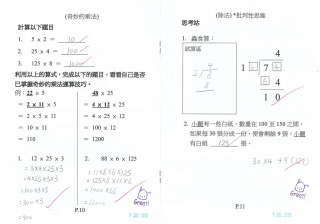 (奇妙的乘法)
計算以下題目
1. 5 x 2 = 10
2. 25 x 4 = 100
3. 125 x 8 = 1000
利用以上的算式,完成以下題目,看看自己是否
已掌握奇妙的乘法運算技巧。
例:22 x 5
= 2 x 11 x 5
= 2 x 5 x 11
= 10 x 11
= 110
48 x 25
= 4 x 12 x 25
= 4 x 25 x 12
= 100 x 12
= 1200
1. 12 x 25 x 3
= 3x4x25x3
= 4x25x3x3
= 100x3x3
= 300x3
= 900
2. 88 x 6 x 125
= 11x8x6x125
= 125x8x11x6
= 1000x66
= 66000
Great!
P.10
(除法) *批判性思維
思考站
1. 蟲食算:
試算區
4
7 4
6 4
1 0
2. 小麗有一些白紙,數量在 100 至 150 之間,
如果每 30 張分成一份,便會剩餘 9 張。小麗
有白紙 129 張。
30x4+9=(129)
Great!
P.11